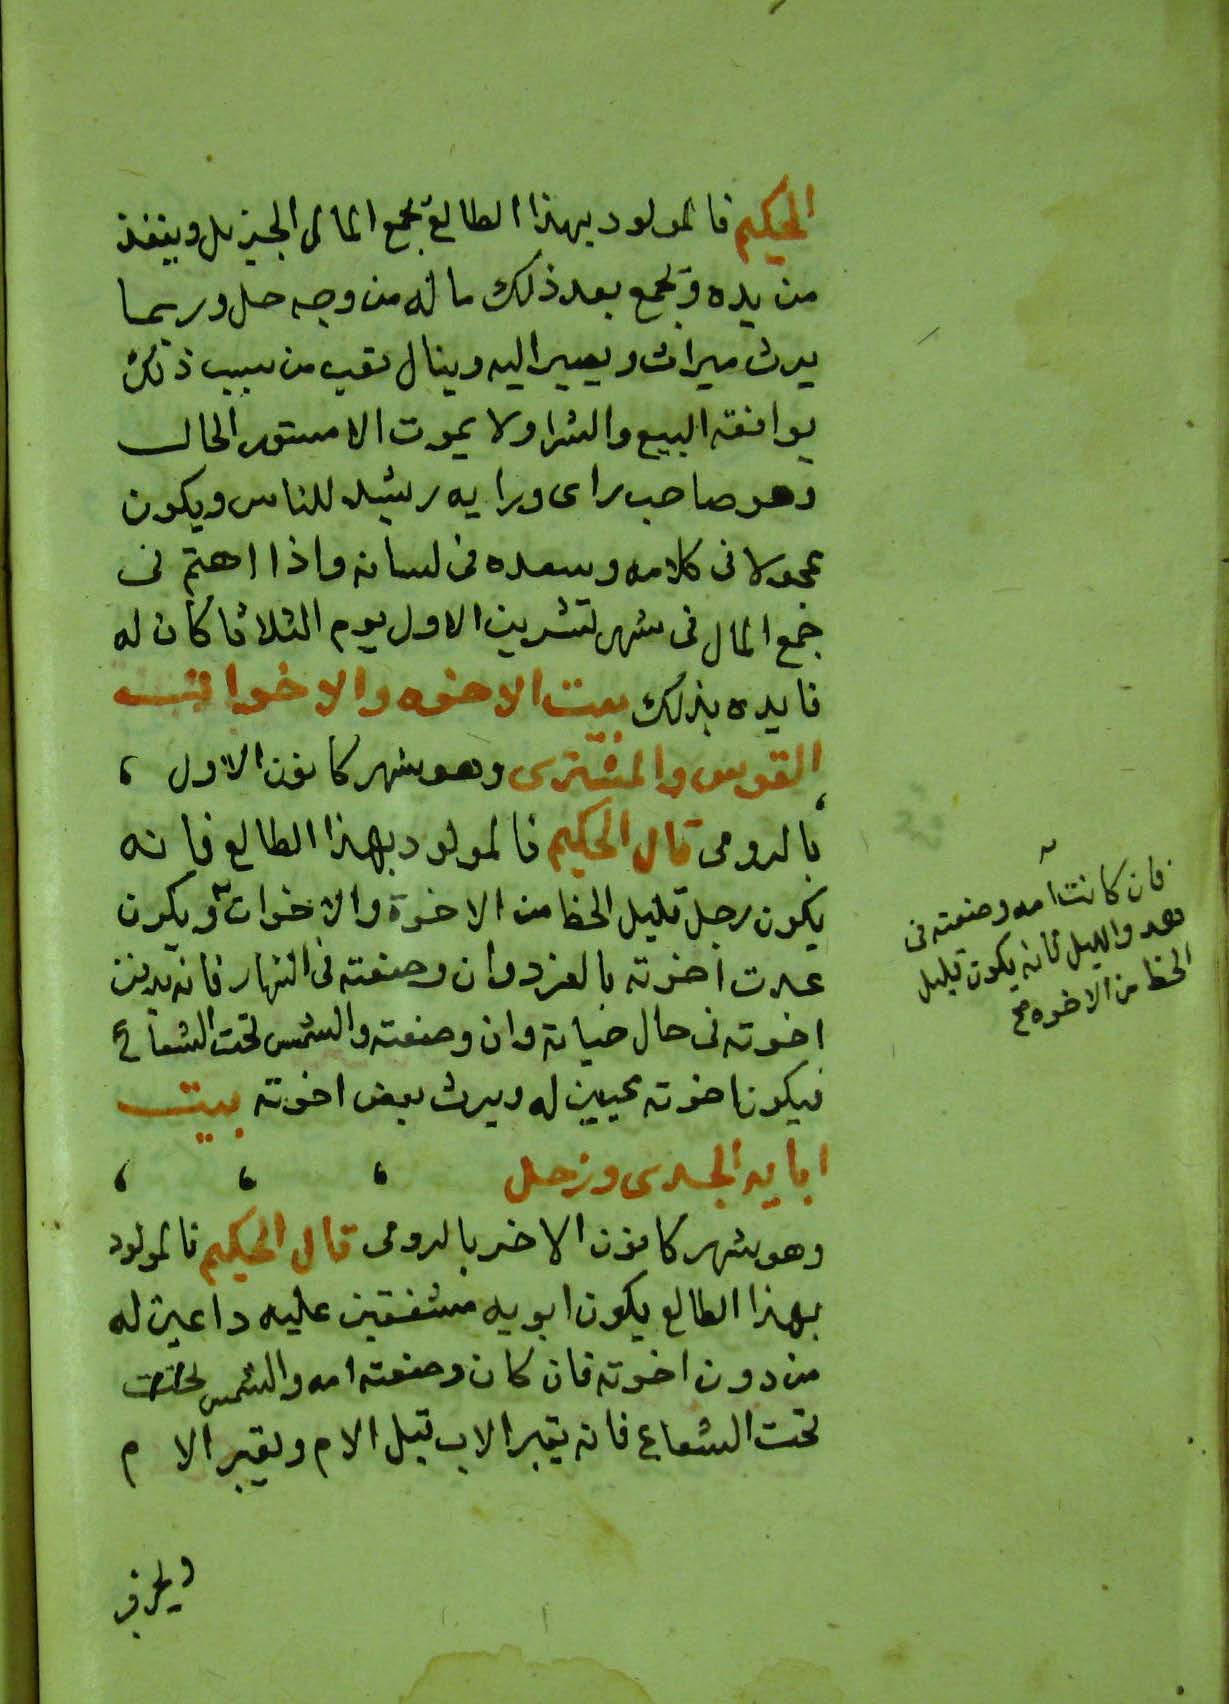 الحكيم فالمولود بهذا الطالع يجمع المال الجزيل وينفذ
من يده ويجمع بعد ذلك ماله من وجه حل وربما
يرث ميراث ويصير اليه وينال تعب من سبب ذلك
يوافقه البيع والشرا ولا يموت الا مستور الحال
وهو صاحب راى ورايه رشيد للناس ويكون
عجولا فى كلامه وسعده فى لسانه واذا اهتم فى
جمع المال فى شهر تشرين الاول يوم الثلاثا كان له
فايده بذلك بيت الاخوه والاخوات
القوس والمشترى وهو شهر كانون الاول
بالرومى قال الحكيم فالمولود بهذا الطالع فانه
يكون رجل قليل الحظ من الاخوة والاخوات ويكون
عدت اخوته بالفرد وان وضعته فى النهار فانه يدفن
اخوته فى حال حياته وان وضعته والشمس تحت الشعاع
فيكون اخوته محبين له ويرث بعض اخوته بيت
ابايه الجدى وزحل
وهو شهر كانون الاخر بالرومى قال الحكيم فالمولود
بهذا الطالع يكون ابويه مشفقين عليه داعين له
من دون اخوته فان كان وضعته امه والشمس تحت
تحت الشعاع فانه يقبر الاب قبل الام ويقبر الام
فان كانت امه وضعته فى
والليل فانه يكون قليل
الحظ من الاخوه صح